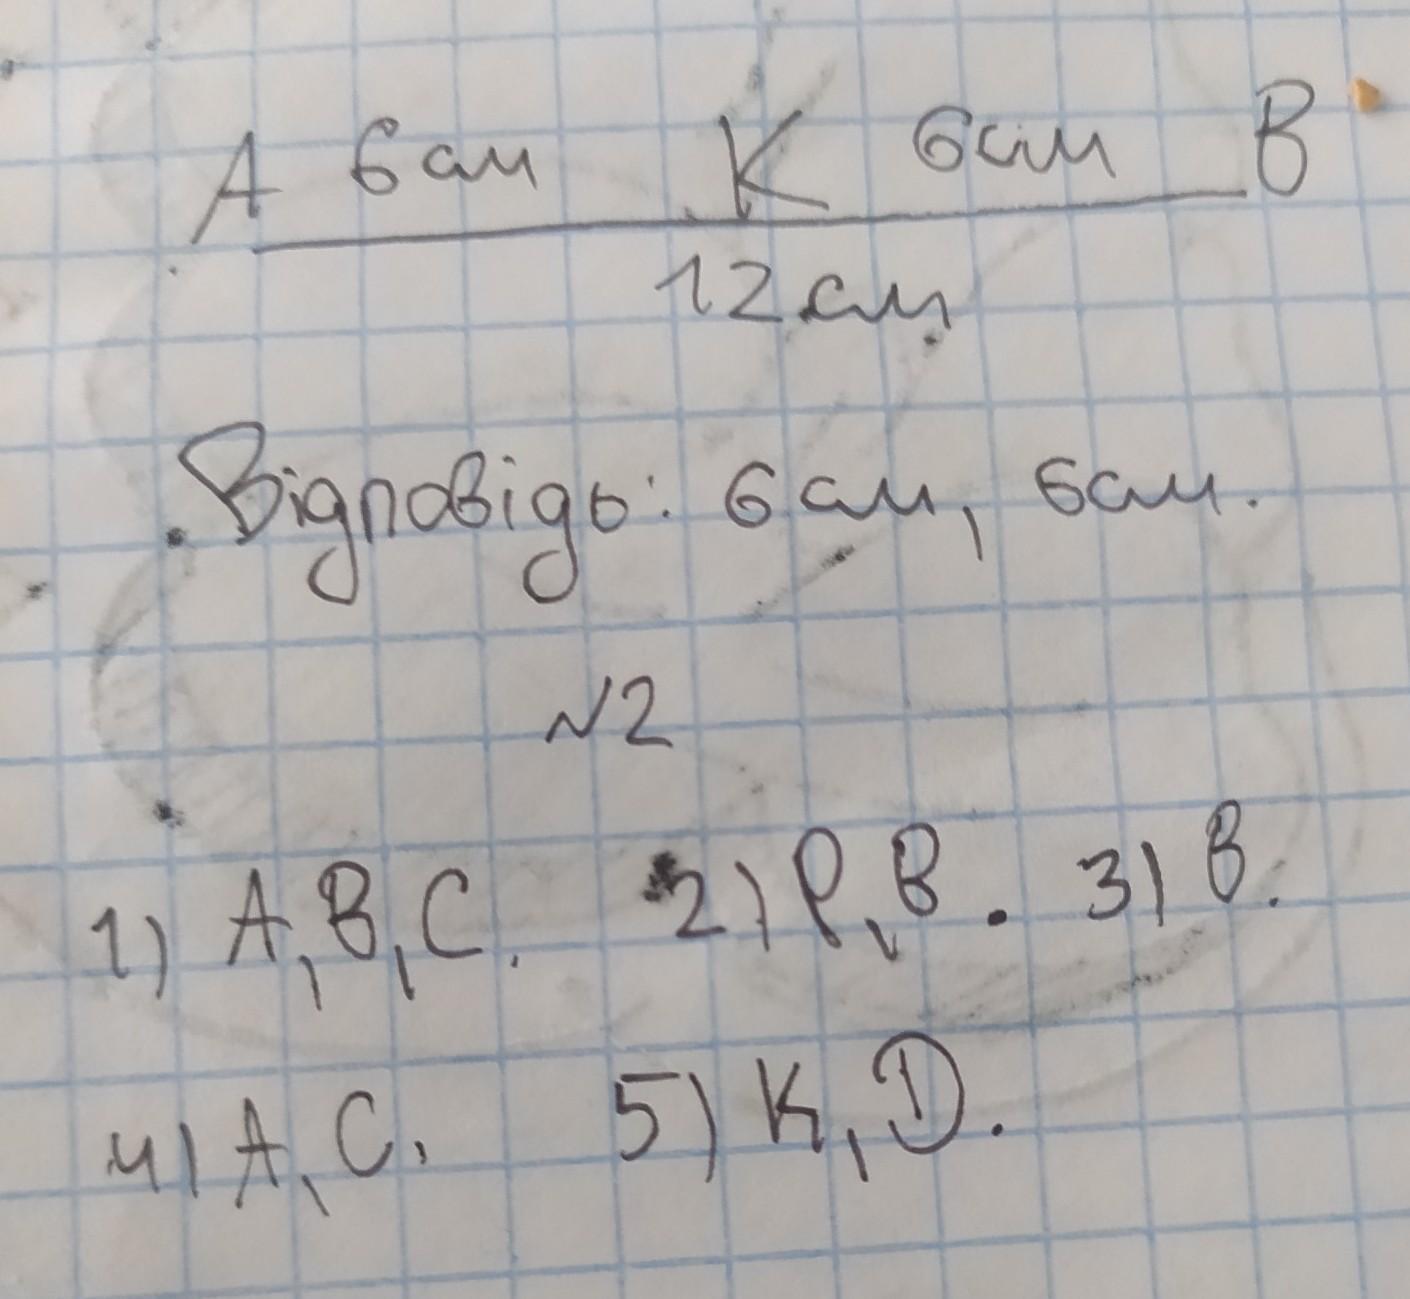 А 6 см К 6 см В
12 см
Відповідь: 6 см, 6 см.
№2
1) A, B, C. 2) P, B. 3) B.
4) A, C. 5) K, D.